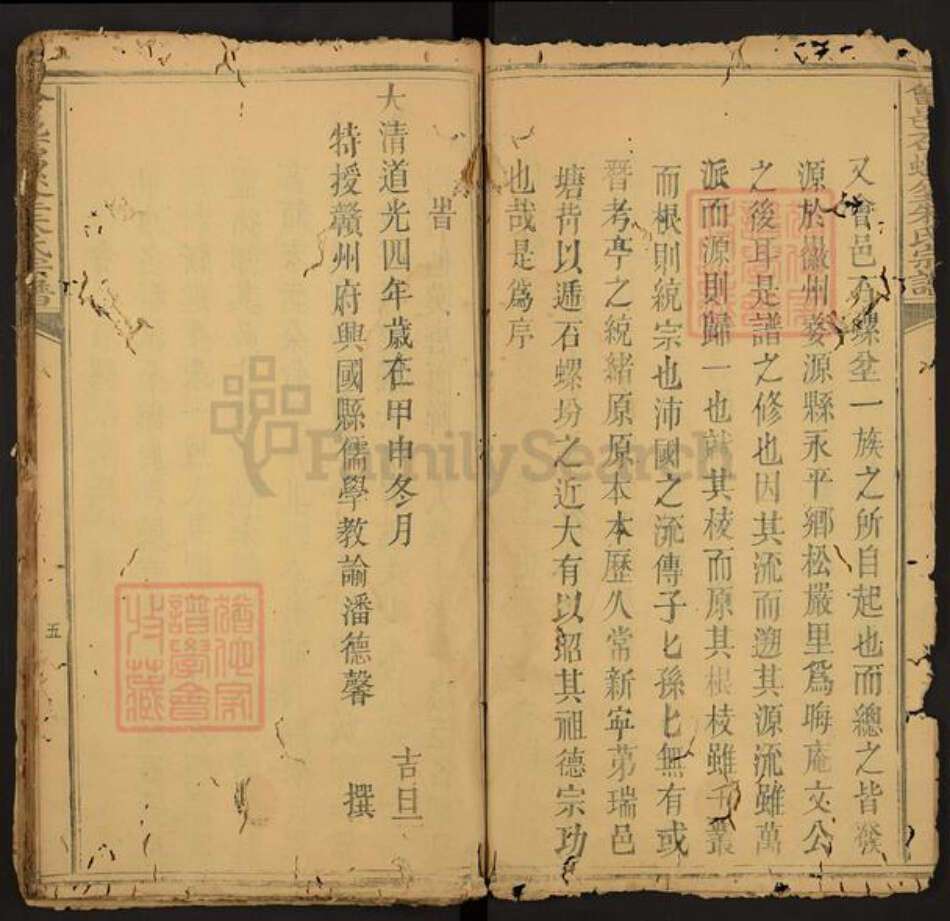 又會邑石螺坌一族之所自起也而總之皆發
源於徽州婺源縣永平鄉松嚴里爲晦庵文公
之後耳是譜之修也因其流而遡其源流雖萬
派而源則歸一也就其枝而原其根枝雖千叢
而根則統宗也沛國之流傳子匕孫匕無有或
替考亭之統緒原原本本歷久常新寧苐瑞邑
塘背以遁石螺坋之近大有以紹其祖德宗功
也哉是爲序
旹
大清道光四年歲在甲申冬月 吉旦
特授贛州府興國縣儒學教諭潘德馨 撰
五
FamilySearch